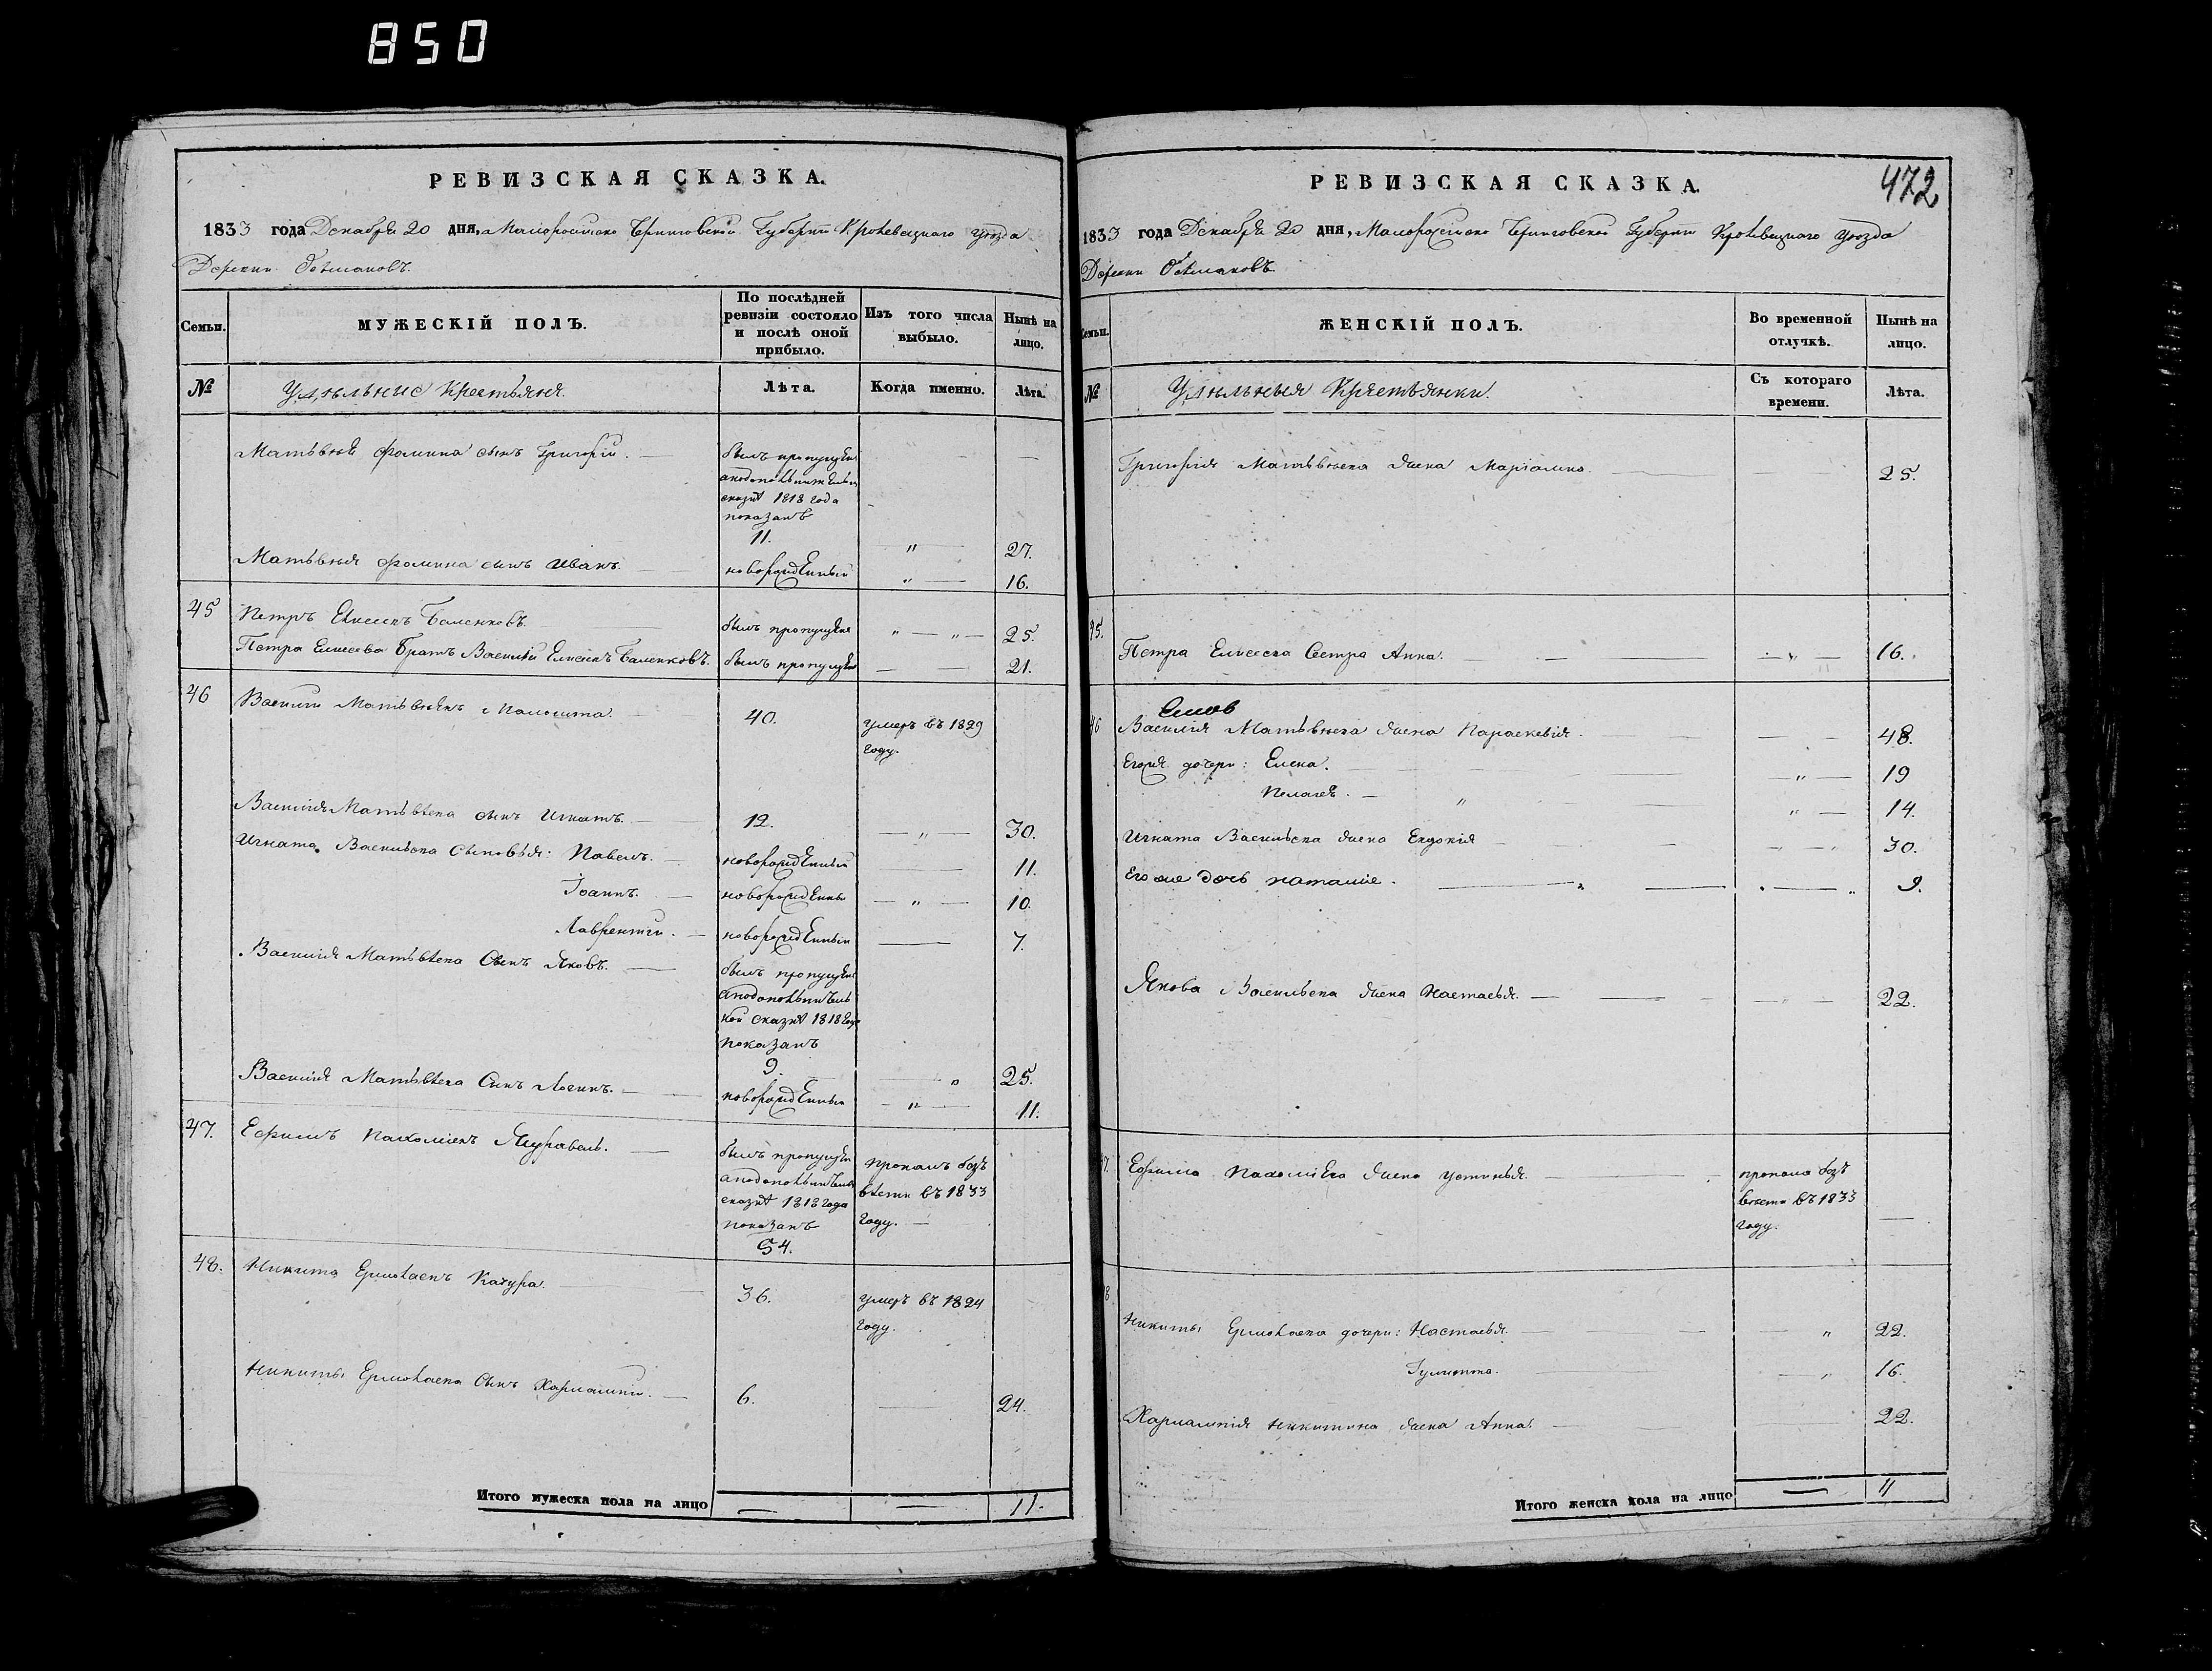 850
РЕВИЗСКАЯ СКАЗКА.
1833 года Декабря 20 дня, Малоросийско Черниговской Губернии Кролевецкаго уезда
Деревни
Семьи. МУЖЕСКІЙ ПОЛЪ. По послѣдней ревизіи состояло и послѣ оной прибыло. Изъ того числа выбыло. Нынѣ на лицо.
№ Удѣльные Крестьяня. Лѣта. Когда именно. Лѣта.
Матвѣя Фомина сынъ Григорій. былъ пропущенъ
сказкѣ 1818 года
показанъ
11. " 27.
Матвѣя Фомина сынъ Иванъ. новорожденный " 16.
45 Петръ Елисеевъ Баленковъ. былъ пропущенъ " " 25.
Петра Елисеева Братъ Василій Елисеевъ Баленковъ. былъ пропущенъ 21.
46 Василій Матвѣевъ 40. умеръ въ 1829
году.
Василія Матвѣева сынъ Игнатъ. 12. " 30.
Игната Васильева сыновья: Павелъ. новорожденный 11.
Іоаннъ. новорожденный " 10.
Лаврентій. новорожденный 7.
Василія Матвѣева Сынъ Яковъ. былъ пропущенъ
аподополнитель
ной сказкѣ 1818 году
показанъ
9. " 25.
Василія Матвѣева Сынъ новорожденный " 11.
47. Ефимъ Пахоміевъ Журавель. былъ пропущенъ пропалъ безъ
вѣсти въ 1833
сказкѣ 1818 года
показанъ году.
54.
48. Никита Ермолаевъ Качура. 36. умеръ въ 1824
году.
Никиты Ермолаева Сынъ Харлампій. 6. 24.
Итого мужеска пола на лицо 11.
РЕВИЗСКАЯ СКАЗКА. 472
1833 года Декабря 20 дня, Малоросійско Черниговской Губерніи Кролевецкаго уезда
Деревни
Семьи. ЖЕНСКІЙ ПОЛЪ. Во временной отлучкѣ. Нынѣ на лицо.
№ Удѣльныя Крестьянки. Съ котораго времени. Лѣта.
Григорія Матвѣева жена 25.
45. Петра Елисеева Сестра Анна. " 16.
46 Василія Матвѣева жена Параскевія. 48.
дочери: Елена. " 19
Пелагея. " " 14.
Игната Васильева жена Евдокія " 30.
Его же дочь Наталіе. 9.
Якова Васильева жена Настасья. " 22.
47. Ефима Пахоміева жена Устинья. пропала безъ
вѣсти въ 1833
году.
48 Никиты Ермолаева дочери: Настасья. " 22.
" 16.
Харлампія Никитина жена Анна. 22.
Итого женска пола на лицо 11